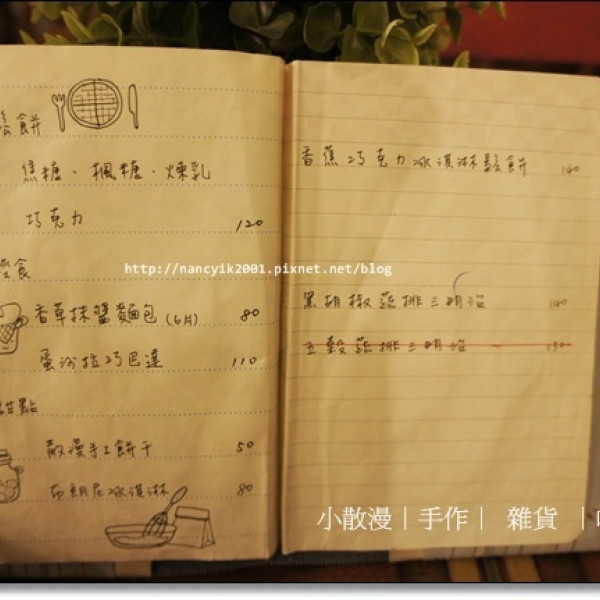 鬆餅
焦糖、楓糖、煉乳
巧克力 120
輕食
香草抹醬麵包 (6片) 80
蛋沙拉巧巴達 110
甜點
散漫手工餅干 50
布朗尼冰淇淋 80
香蕉巧克力冰淇淋鬆餅 140
黑胡椒蔬排三明治 140
五穀蔬排三明治 130
http://nancyik2001.pixnet.net/blog
小散漫｜手作｜ 雜貨 ｜